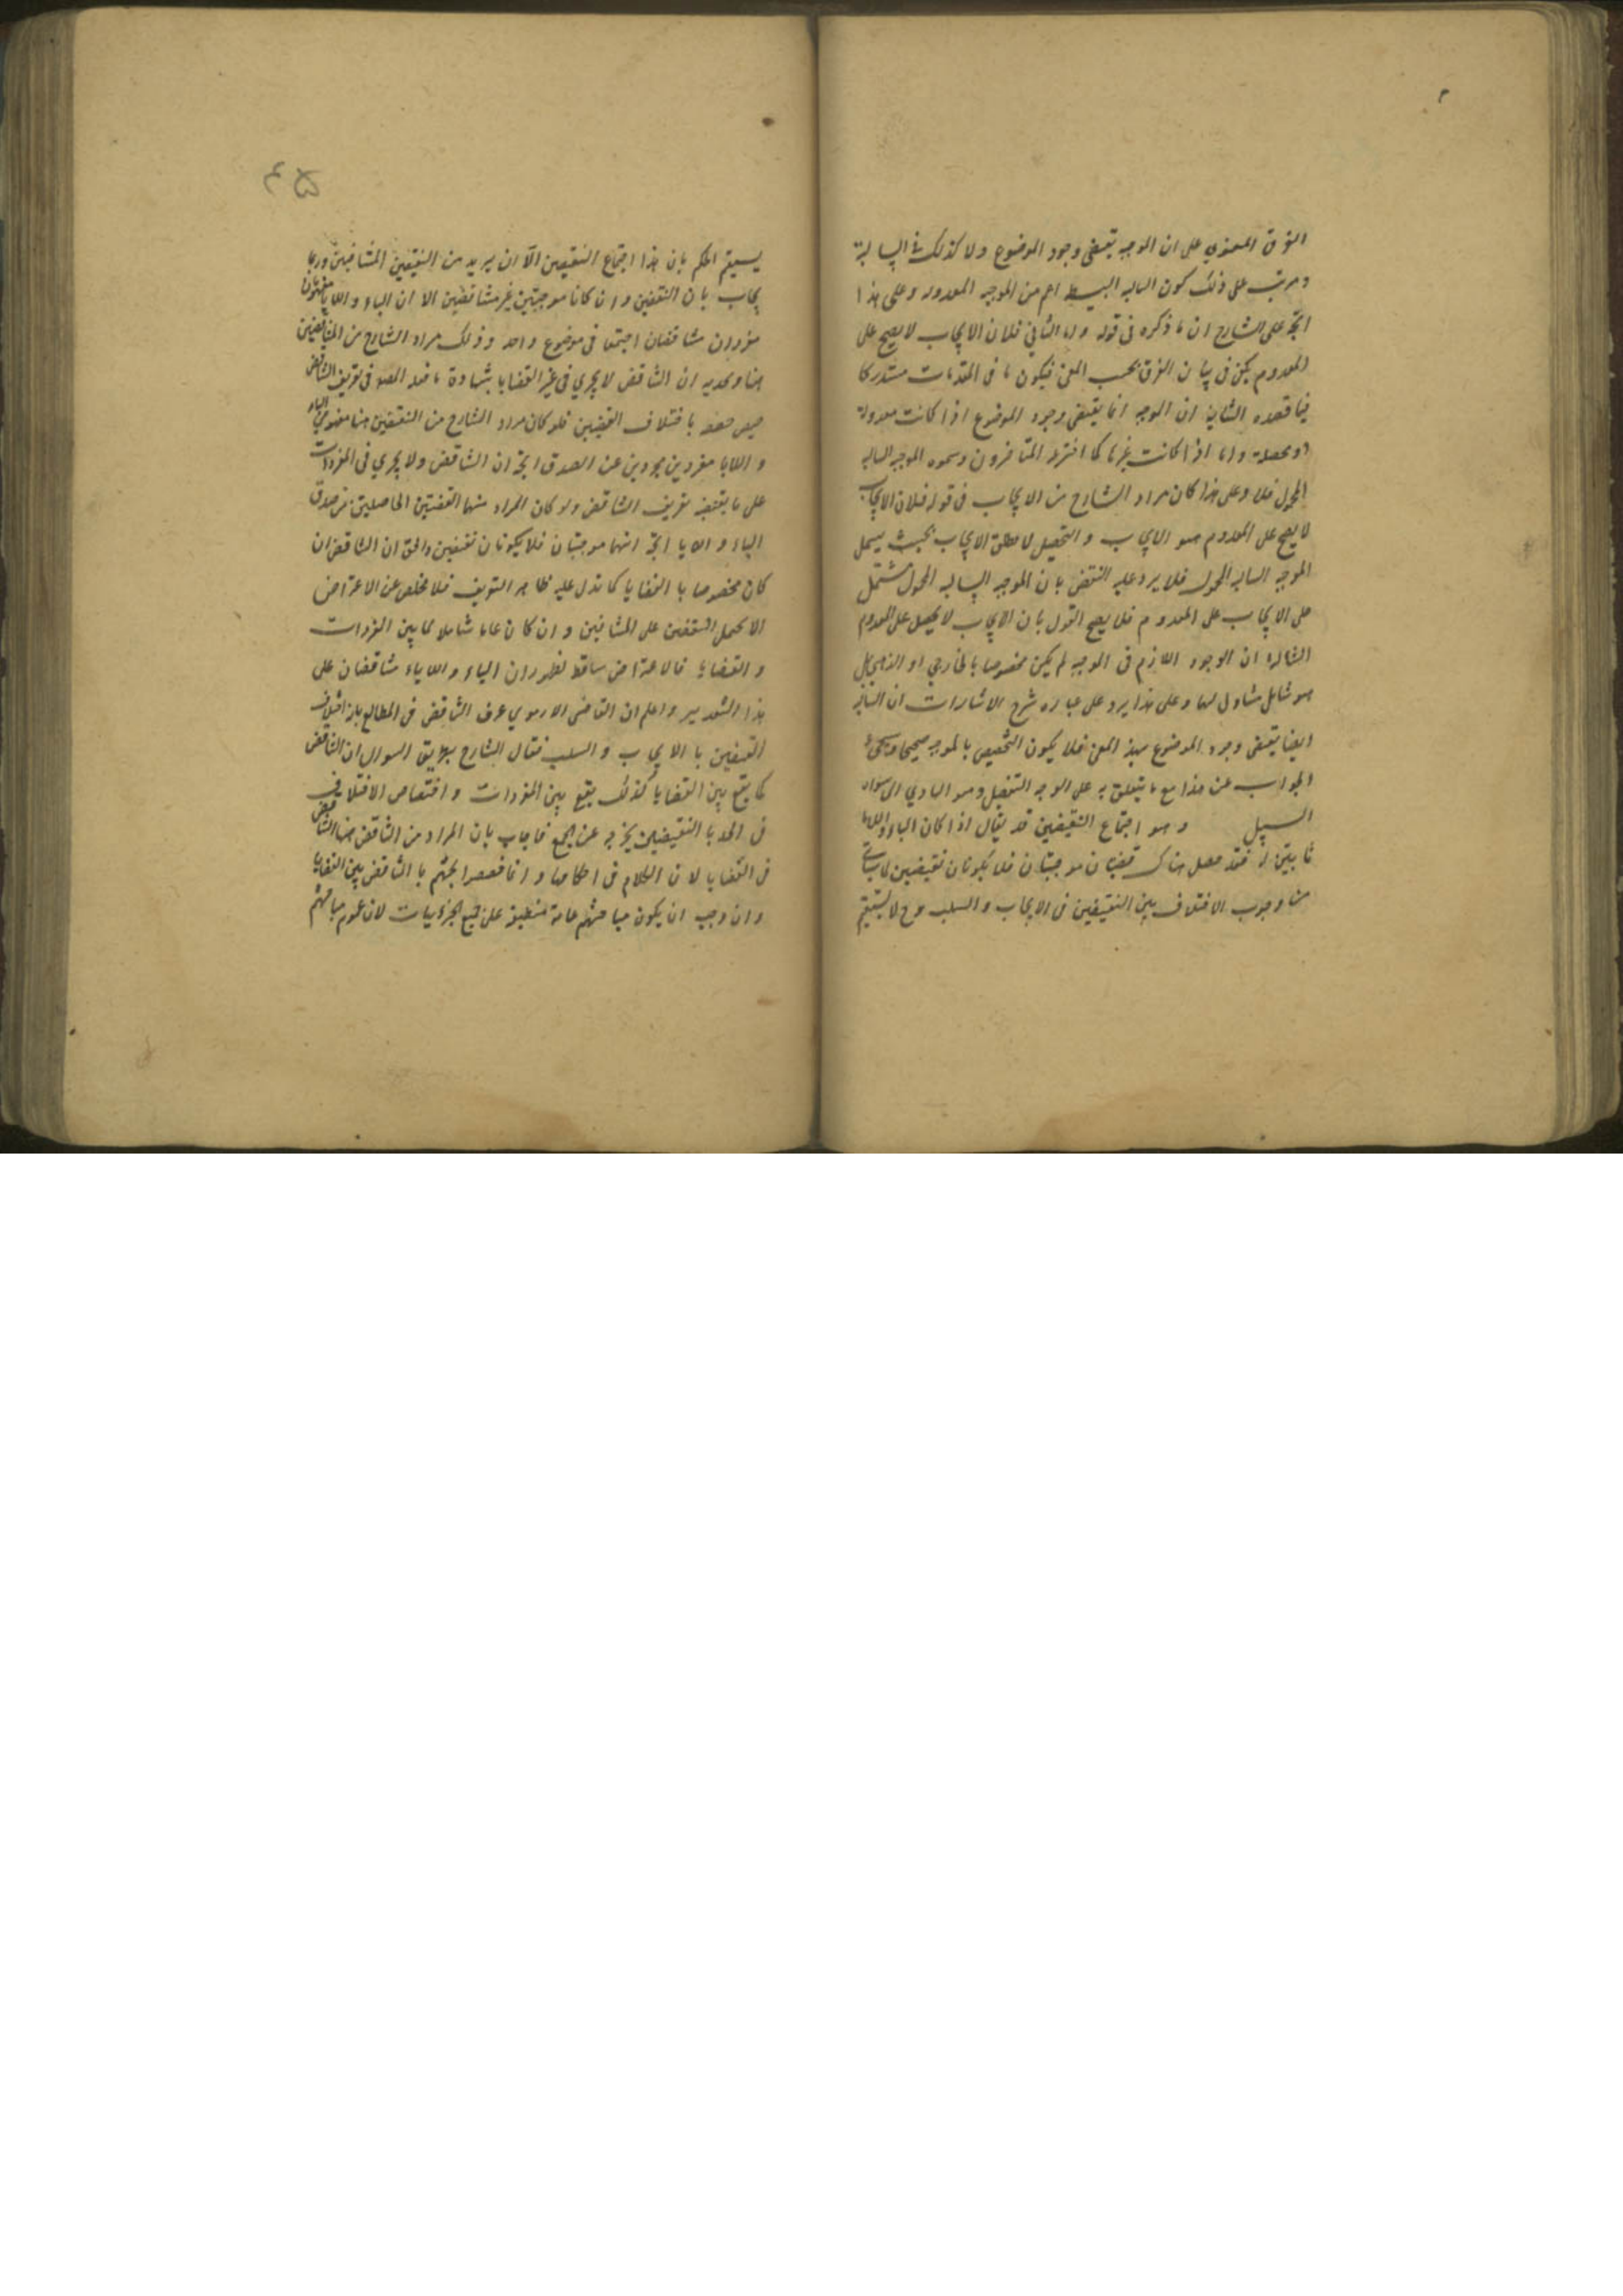 الفرق المعنوي على ان الموجبه تقتضى وجود الموضوع ولا كذلك فى السالبة
ومرتب على ذلك كون السالبه البسيطه اعم من الموجبه المعدوله وعلى هذا
اتجه على الشارح ان ما ذكره فى قوله واما الثاني فلان الايجاب لا يصح على
المعدوم يكفى فى بيان الفرق بحسب المعنى فيكون ما فى المقدمات مستدركا
فيما قصده الثانية ان الموجبه انما تقتضى وجود الموضوع اذا كانت معدولة
او محصلة واما اذا كانت غيرها كما اخترعه المتأخرون وسموه الموجبه السالبه
المحمول فلا وعلى هذا كان مراد الشارح من الايجاب فى قوله فلان الايجاب
لا يصح على المعدوم هو الايجاب والتحصيل لا مطلق الايجاب بحيث يشمل
الموجبه السالبه المحمول فلا يرد عليه النقض بان الموجبه السالبه المحمول تشتمل
على الايجاب على المعدوم فلا يصح القول بان الايجاب لا يحصل على المعدوم
الثالثه ان الوجود اللازم فى الموجبه لم يكن مخصوصا بالخارجي او الذهني بل
هو شامل متناول لهما وعلى هذا يرد على عباره شرح الاشارات ان السالبه
ايضا تقتضى وجود الموضوع بهذا المعنى فلا يكون التخصيص بالموجبه صحيحا وسيجئ
الجواب عن هذا مع ما يتعلق به على الوجه التفصيل وهو الهادي الى سواء
السبيل وهو اجتماع النقيضين قد يقال اذا كان الباء واللابا
ثابتين له فقد حصل هناك قضيتان موجبتان فلا يكونان نقيضين لما سيأتى
من وجوب الاختلاف بين النقيضين فى الايجاب والسلب وح لا يستقيم
۴۵
يستقيم الحكم بان هذا اجتماع النقيضين الا ان يريد من النقيضين المتنافيين وربما
يجاب بان النقيضين وان كانا موجبتين غير متناقضين الا ان الباء واللابا مفهومان
مفردان متناقضان اجتمعا فى موضوع واحد وذلك مراد الشارح من المتناقضين
هنا ويحديه ان التناقض لا يجري فى غير القضايا بشهادة ما فعله المصو فى تعريف التناقض
حيث خصه باختلاف القضيتين فلو كان مراد الشارح من النقيضين هنا مفهومي الباء
واللابا مفردين مجردين عن الصدق اتجه ان التناقض ولا يجري فى المفردات
على ما يقتضيه تعريف التناقض ولو كان المراد منهما القضيتين الحاصلتين من صدق
الباء واللابا اتجه انهما موجبتان فلا يكونان نقيضين والحق ان التناقض ان
كان مخصوصا بالقضايا كما تدل عليه ظاهر التعريف فلا مخلص عن الاعتراض
الا بحمل النقيضين على المتنافيين وان كان عاما شاملا لما بين المفردات
والقضايا فالاعتراض ساقط لظهور ان الباء واللاباء متناقضان على
هذا التقدير واعلم ان القاضى الارموي عرف التناقض فى المطالع بانه اختلاف
القضيتين بالايجاب والسلب فقال الشارح بطريق السوال ان التناقض
كما يقع بين القضايا كذلك يقع بين المفردات واختصاص الاختلاف
فى الحد بالنقيضين يخرجه عن الجمع فاجاب بان المراد من التناقض هنا التناقض
فى القضايا لان الكلام فى احكامها وانما خصصوا بحثهم بالتناقض بين القضايا
وان وجب ان يكون مباحثهم عامة منطبقة على جميع الجزئيات لان عموم مباحثهم